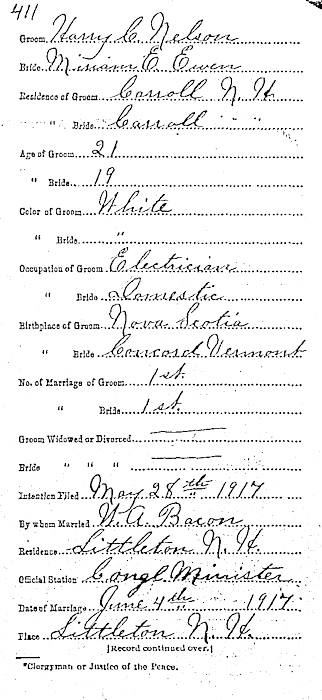 411
Groom Harry C. Nelson
Bride Miriam E. Ewen
Residence of Groom Carroll N. H.
" Bride Carroll " "
Age of Groom 21
" Bride 19
Color of Groom White
" Bride "
Occupation of Groom Electrician
" Bride Domestic
Birthplace of Groom Nova Scotia
" Bride Concord Vermont
No. of Marriage of Groom 1st
" Bride 1st.
Groom Widowed or Divorced
Bride " " "
Intention Filed May 28th 1917
By whom Married W. A. Bacon
Residence Littleton N. H.
Official Station Congl. Minister
Date of Marriage June 4th 1917
Place Littleton N. H.
[Record continued over.]
*Clergyman or Justice of the Peace.